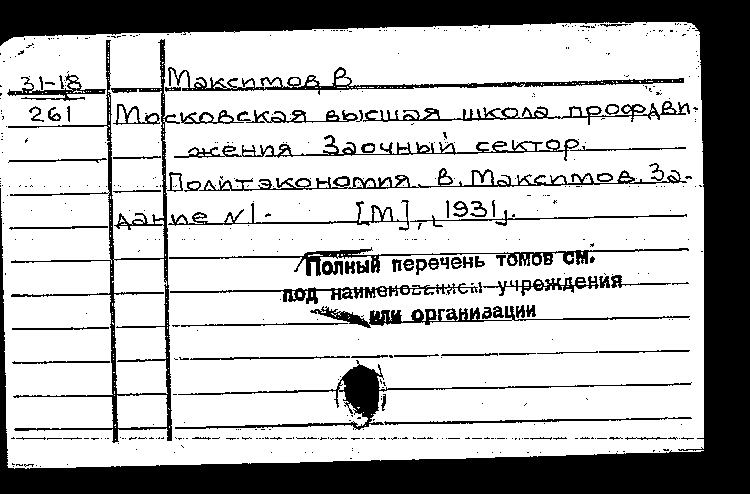 31-18 Максимов, В
261 Московская высшая школа профдви-
жения. Заочный сектор.
Политэкономия. В. Максимов. За-
дание N1- [М], [1931].
Полный перечень томов см.
под наименованием учреждения
или организации